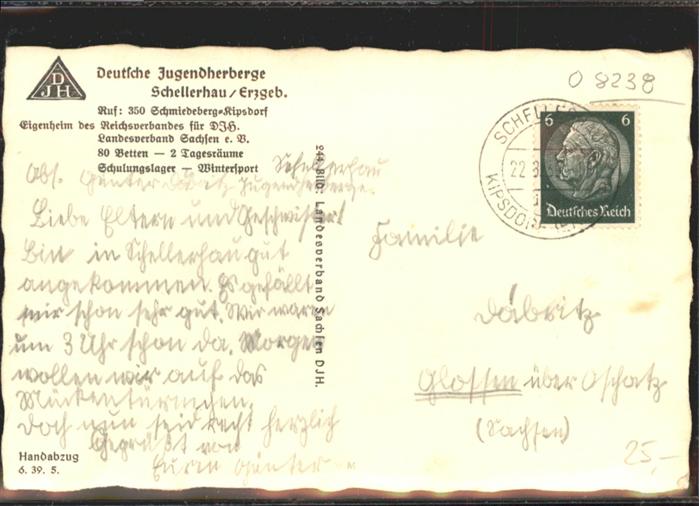 DJH
Deutsche Jugendherberge
Schellerhau/Erzgeb.
Ruf: 350 Schmiedeberg-Kipsdorf
Eigenheim des Reichsverbandes für DJH.
Landesverband Sachsen e. V.
80 Betten — 2 Tagesräume
Schulungslager — Wintersport
Abs. Günter Däbritz Schellerhau
Jugendherberge.
Liebe Eltern und Geschwister!
Bin in Schellerhau gut
angekommen. Es gefällt
mir schon sehr gut. Wir waren
um 3 Uhr schon da. Morgen
wollen wir auf das
Mückentürmchen.
Doch nun seid recht herzlich
Gegrüßt von
Euren Günter
Handabzug
6. 39. 5.
244 Bild: Landesverband Sachsen DJH.
O 8238
6 6
Deutsches Reich
KIPSDORF
Familie
Däbritz
Glossen über Oschatz
(Sachsen)
25,-